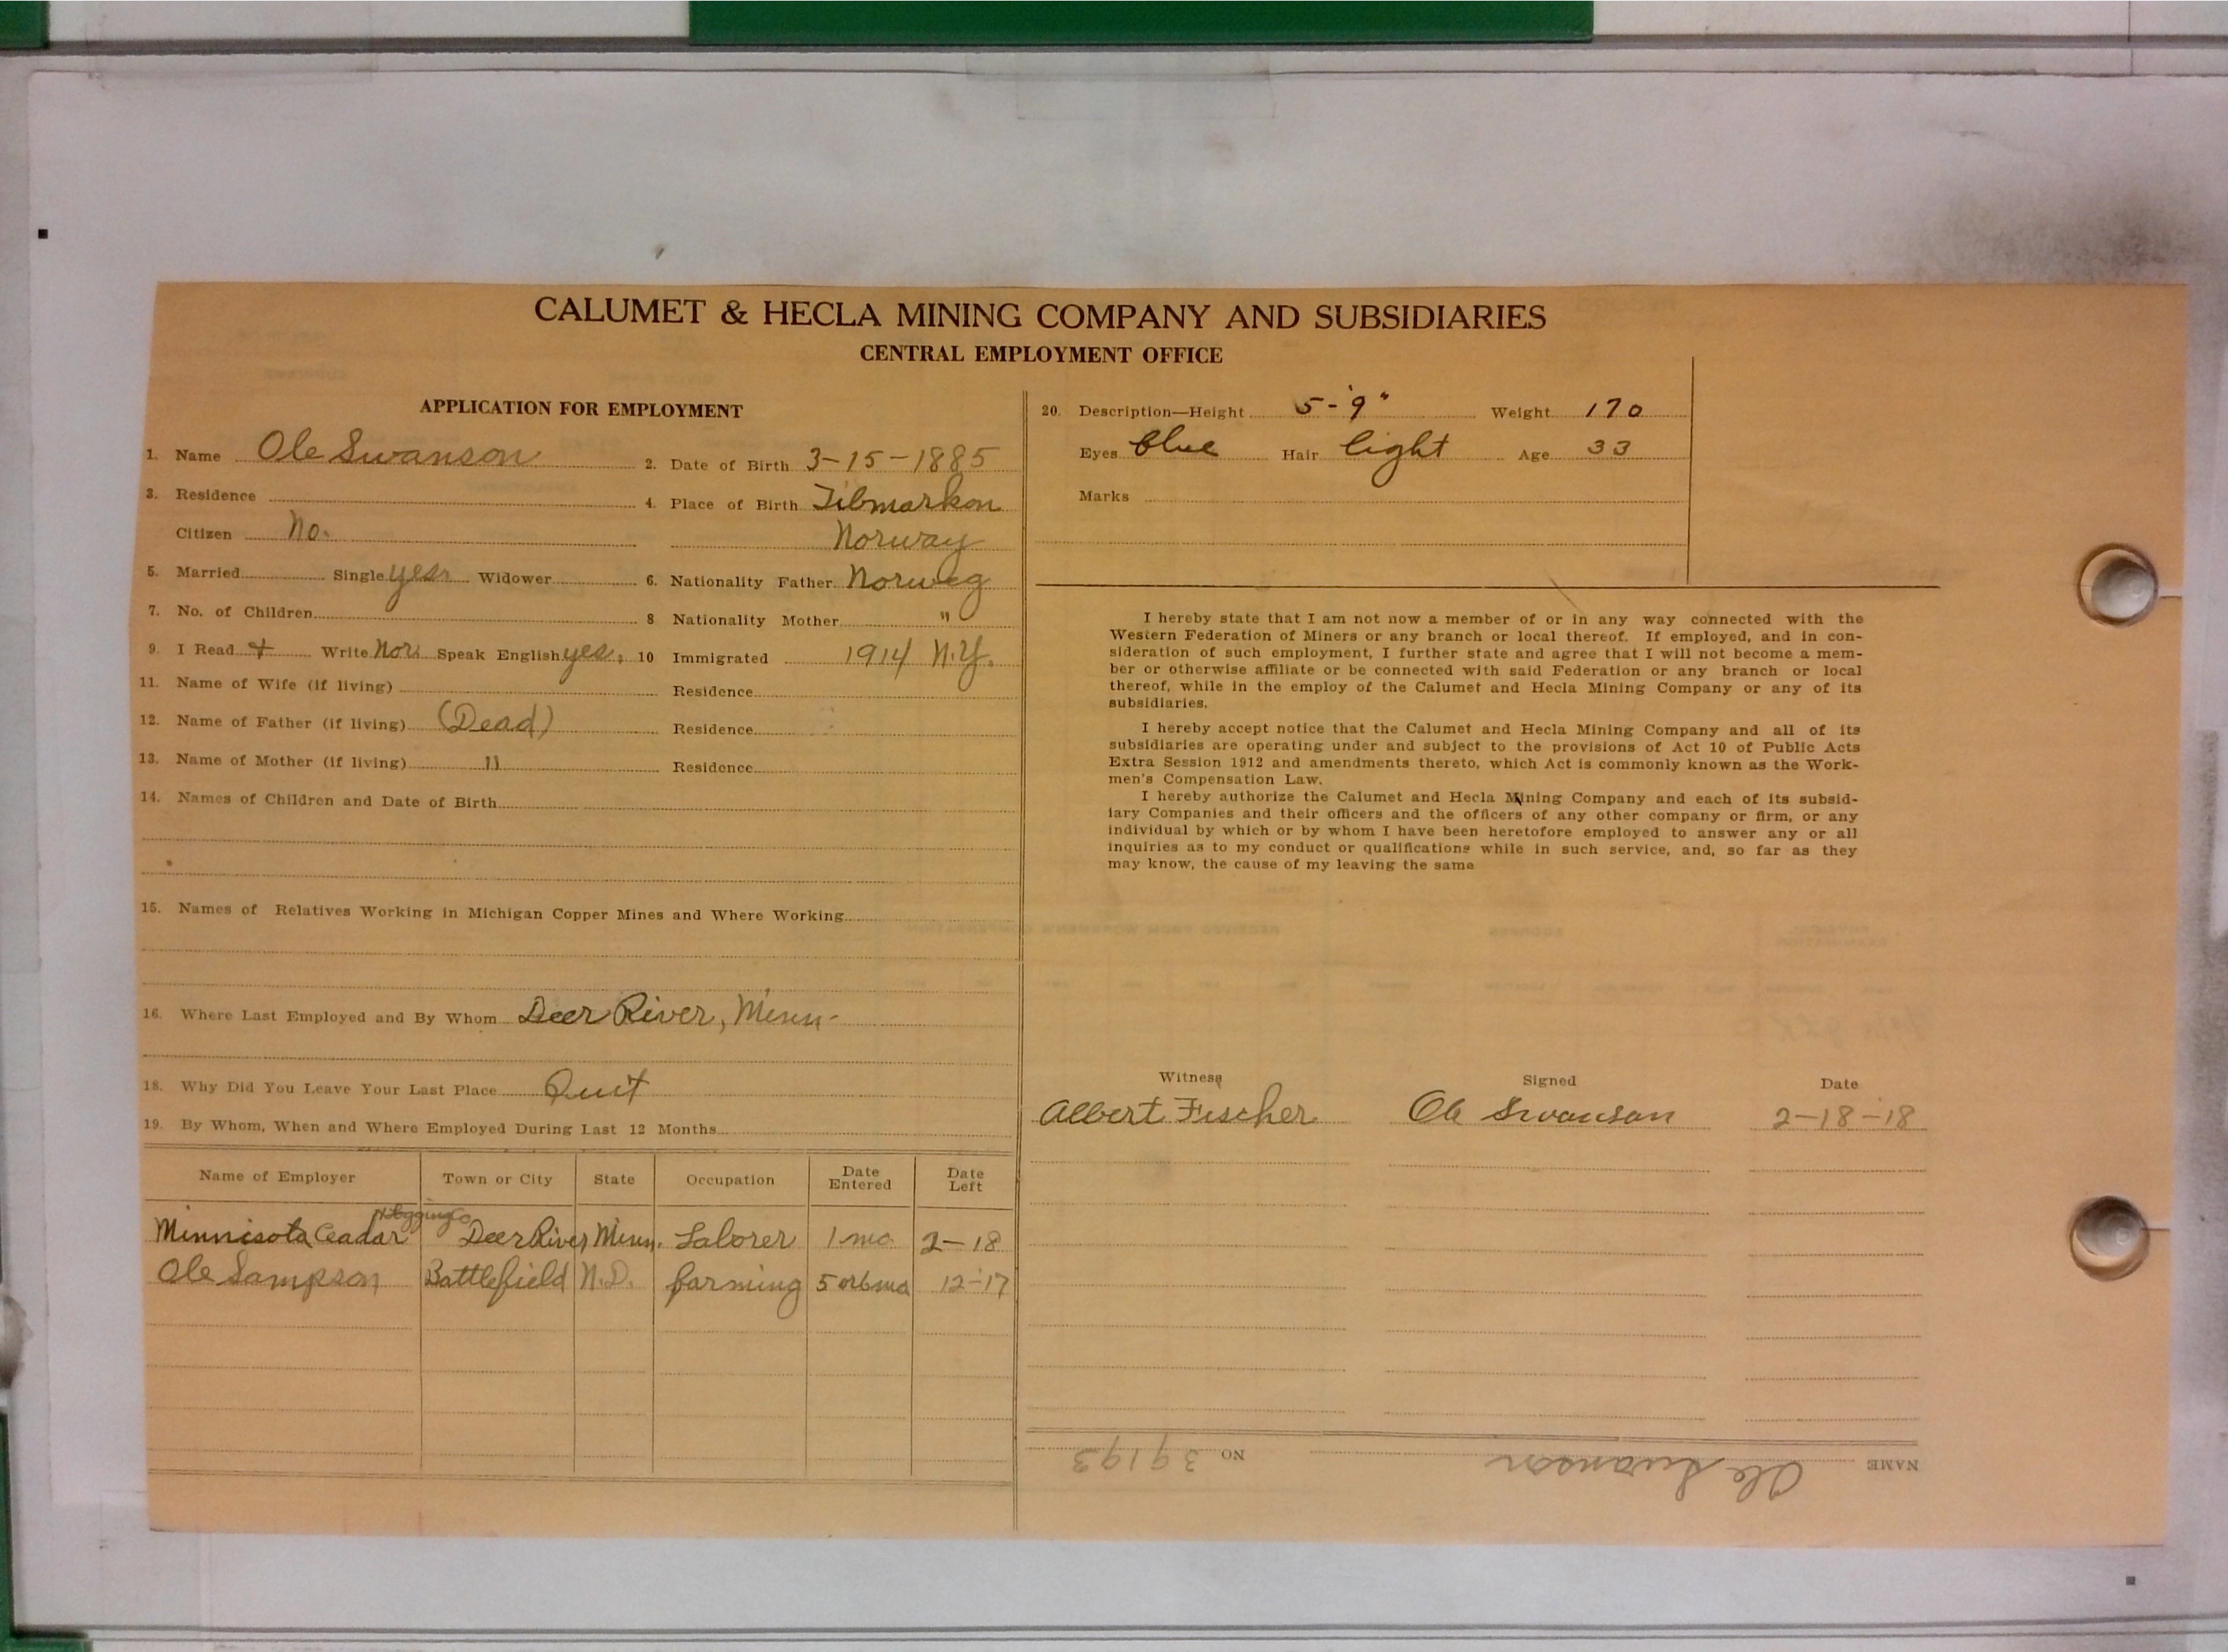 CALUMET & HECLA MINING COMPANY AND SUBSIDIARIES
CENTRAL EMPLOYMENT OFFICE
APPLICATION FOR EMPLOYMENT
1. Name Ole Swanson 2. Date of Birth 3-15-1885
3. Residence 4. Place of Birth Tilmarken
Citizen No. Norway
5. Married Single yes Widower 6. Nationality Father Norweg
7. No. of Children 8 Nationality Mother "
9. I Read + Write Nor. Speak English yes, 10 Immigrated 1914 N.Y.
11. Name of Wife (if living) Residence
12. Name of Father (if living) (Dead) Residence
13. Name of Mother (if living) " Residence
14. Names of Children and Date of Birth
15. Names of Relatives Working in Michigan Copper Mines and Where Working
16. Where Last Employed and By Whom Deer River, Minn-
18. Why Did You Leave Your Last Place Quit
19. By Whom, When and Where Employed During Last 12 Months
Name of Employer Town or City State Occupation Date Entered Date Left
Logging Co
Minnisota Ceadar Deer River Minn. Laborer 1 mo. 2-18
Ole Sampson Battlefield N.D. farming 5 or 6 mo 12-17
20. Description—Height 5-9" Weight 170
Eyes blue Hair light Age 33
Marks
I hereby state that I am not now a member of or in any way connected with the
Western Federation of Miners or any branch or local thereof. If employed, and in con-
sideration of such employment, I further state and agree that I will not become a mem-
ber or otherwise affiliate or be connected with said Federation or any branch or local
thereof, while in the employ of the Calumet and Hecla Mining Company or any of its
subsidiaries.
I hereby accept notice that the Calumet and Hecla Mining Company and all of its
subsidiaries are operating under and subject to the provisions of Act 10 of Public Acts
Extra Session 1912 and amendments thereto, which Act is commonly known as the Work-
men's Compensation Law.
I hereby authorize the Calumet and Hecla Mining Company and each of its subsid-
iary Companies and their officers and the officers of any other company or firm, or any
individual by which or by whom I have been heretofore employed to answer any or all
inquiries as to my conduct or qualifications while in such service, and, so far as they
may know, the cause of my leaving the same
Witness Signed Date
Albert Fischer Ole Swanson 2-18-18
NAME Ole Swanson NO 39193